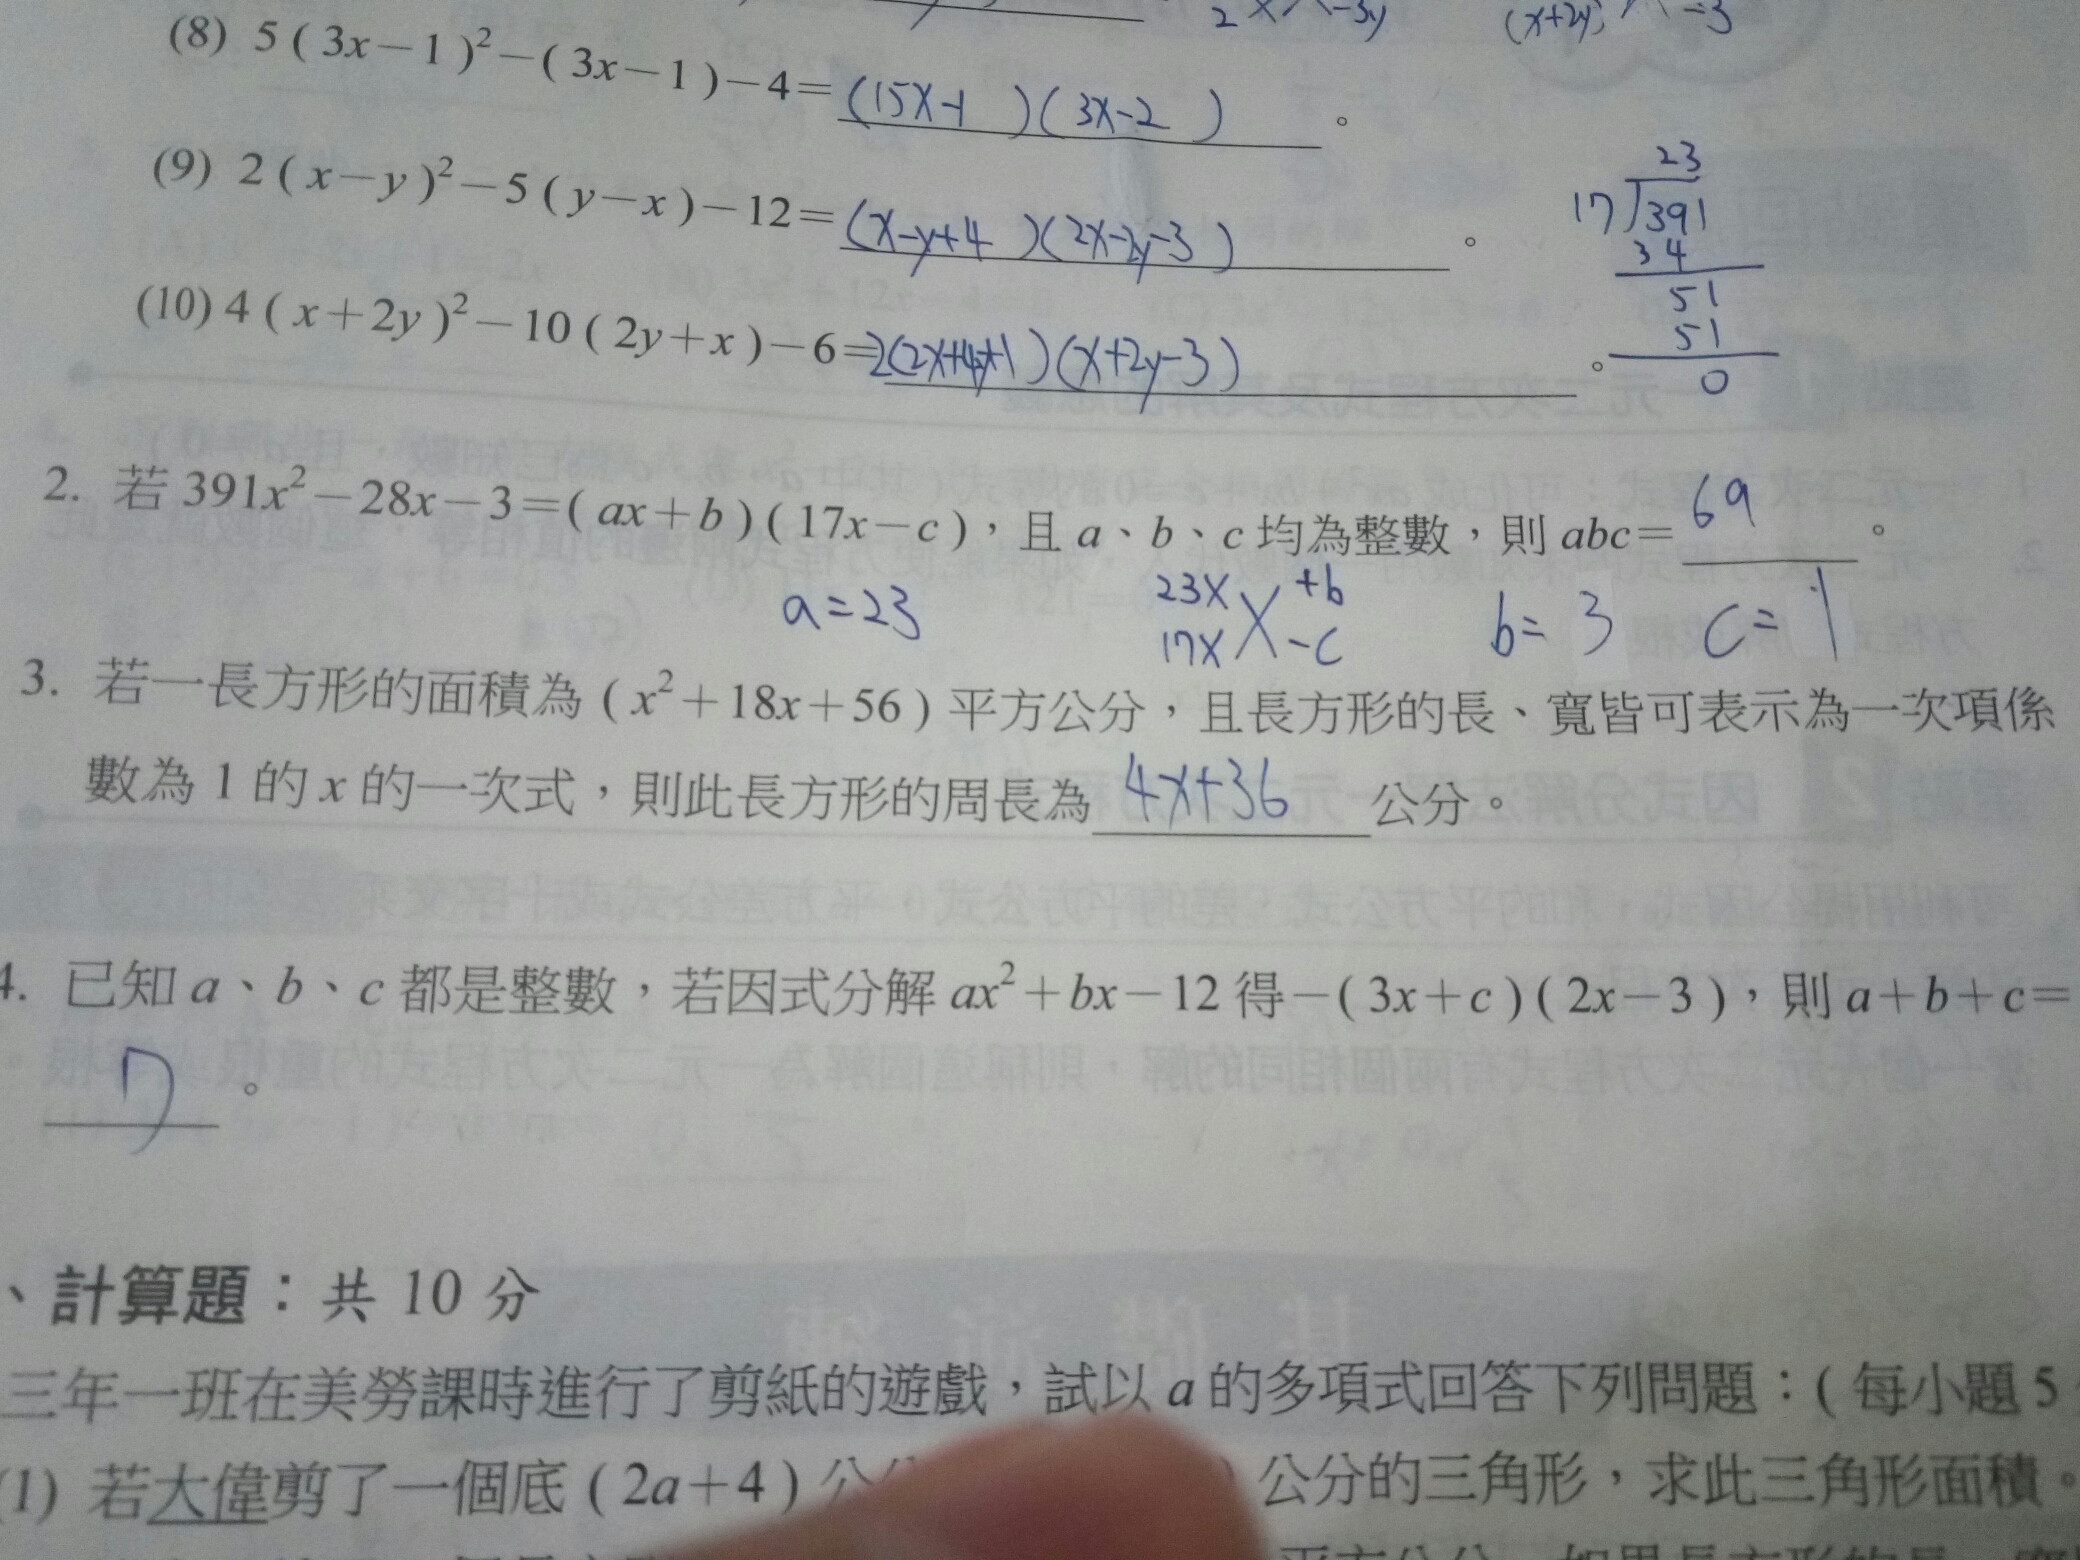 2 -3y (x+2y) -3
(8) 5(3x－1)²－(3x－1)－4＝(15x-1)(3x-2)。
(9) 2(x－y)²－5(y－x)－12＝(x-y+4)(2x-2y-3)。
23
17)391
34
51
51
0
(10) 4(x＋2y)²－10(2y＋x)－6＝2(2x+4y+1)(x+2y-3)。
2. 若 391x²－28x－3＝(ax＋b)(17x－c)，且 a、b、c 均為整數，則 abc＝69。
a=23 23x +b b=3 c=1
17x -c
3. 若一長方形的面積為(x²＋18x＋56)平方公分，且長方形的長、寬皆可表示為一次項係
數為 1 的 x 的一次式，則此長方形的周長為4x+36公分。
4. 已知 a、b、c 都是整數，若因式分解 ax²＋bx－12 得－(3x＋c)(2x－3)，則 a＋b＋c＝
7。
、計算題：共 10 分
三年一班在美勞課時進行了剪紙的遊戲，試以 a 的多項式回答下列問題：(每小題 5
(1) 若大偉剪了一個底(2a＋4)公 )公分的三角形，求此三角形面積。